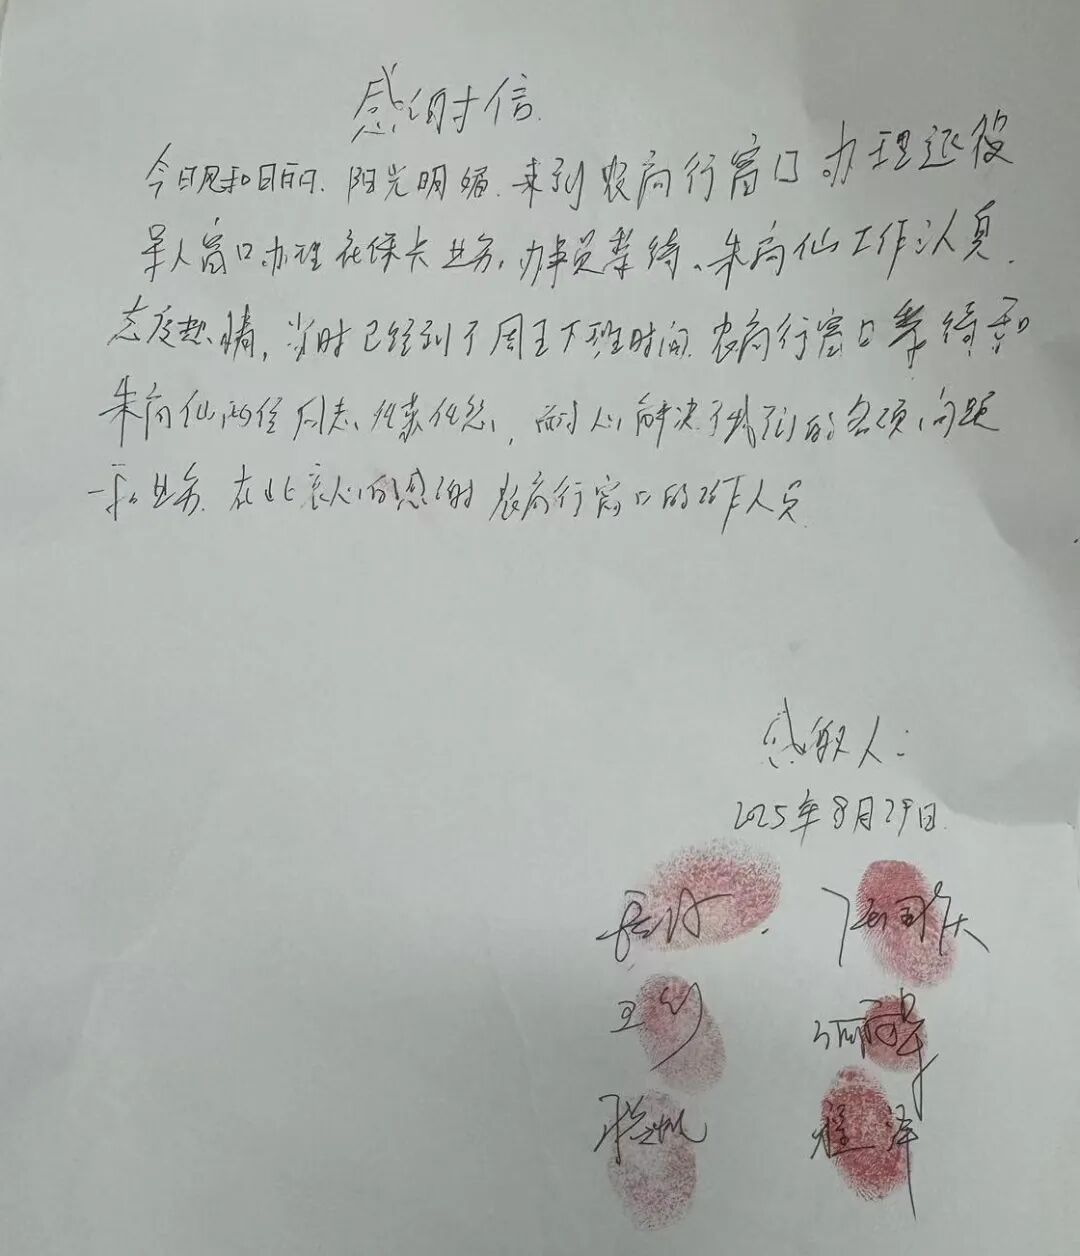 感谢信
今日风和日丽、阳光明媚、来到农商行窗口办理退役
军人窗口办理社保卡业务,办事员李绮、朱向仙工作认真、
态度热情,当时已经到了周五下班时间、农商行窗口李绮和
朱向仙两位同志,任劳任怨,耐心解决了我们的各项问题
和业务、在此衷心的感谢农商行窗口的工作人员
感敬人:
2025年8月29日
王
程泽